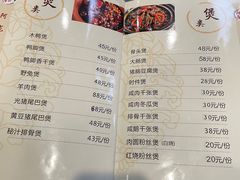 煲
类
木鸭煲 45元/份
鸭脚煲 48元/份
鸭脚香干煲 48元/份
野兔煲 48元/份
羊肉煲 88元/份
光猪尾巴煲 68元/份
黄豆猪尾巴煲 48元/份
秘汁排骨煲 43元/份
煲
类
骨头煲 48元/份
大肠煲 58元/份
猪肠豆腐煲 38元/份
时件煲 28元/份
咸肉千张煲 28元/份
咸肉冬瓜煲 28元/份
排骨千张煲 38元/份
咸鹅千张煲 38元/份
肉圆粉丝煲 (白烧) 20元/份
红烧粉丝煲 20元/份